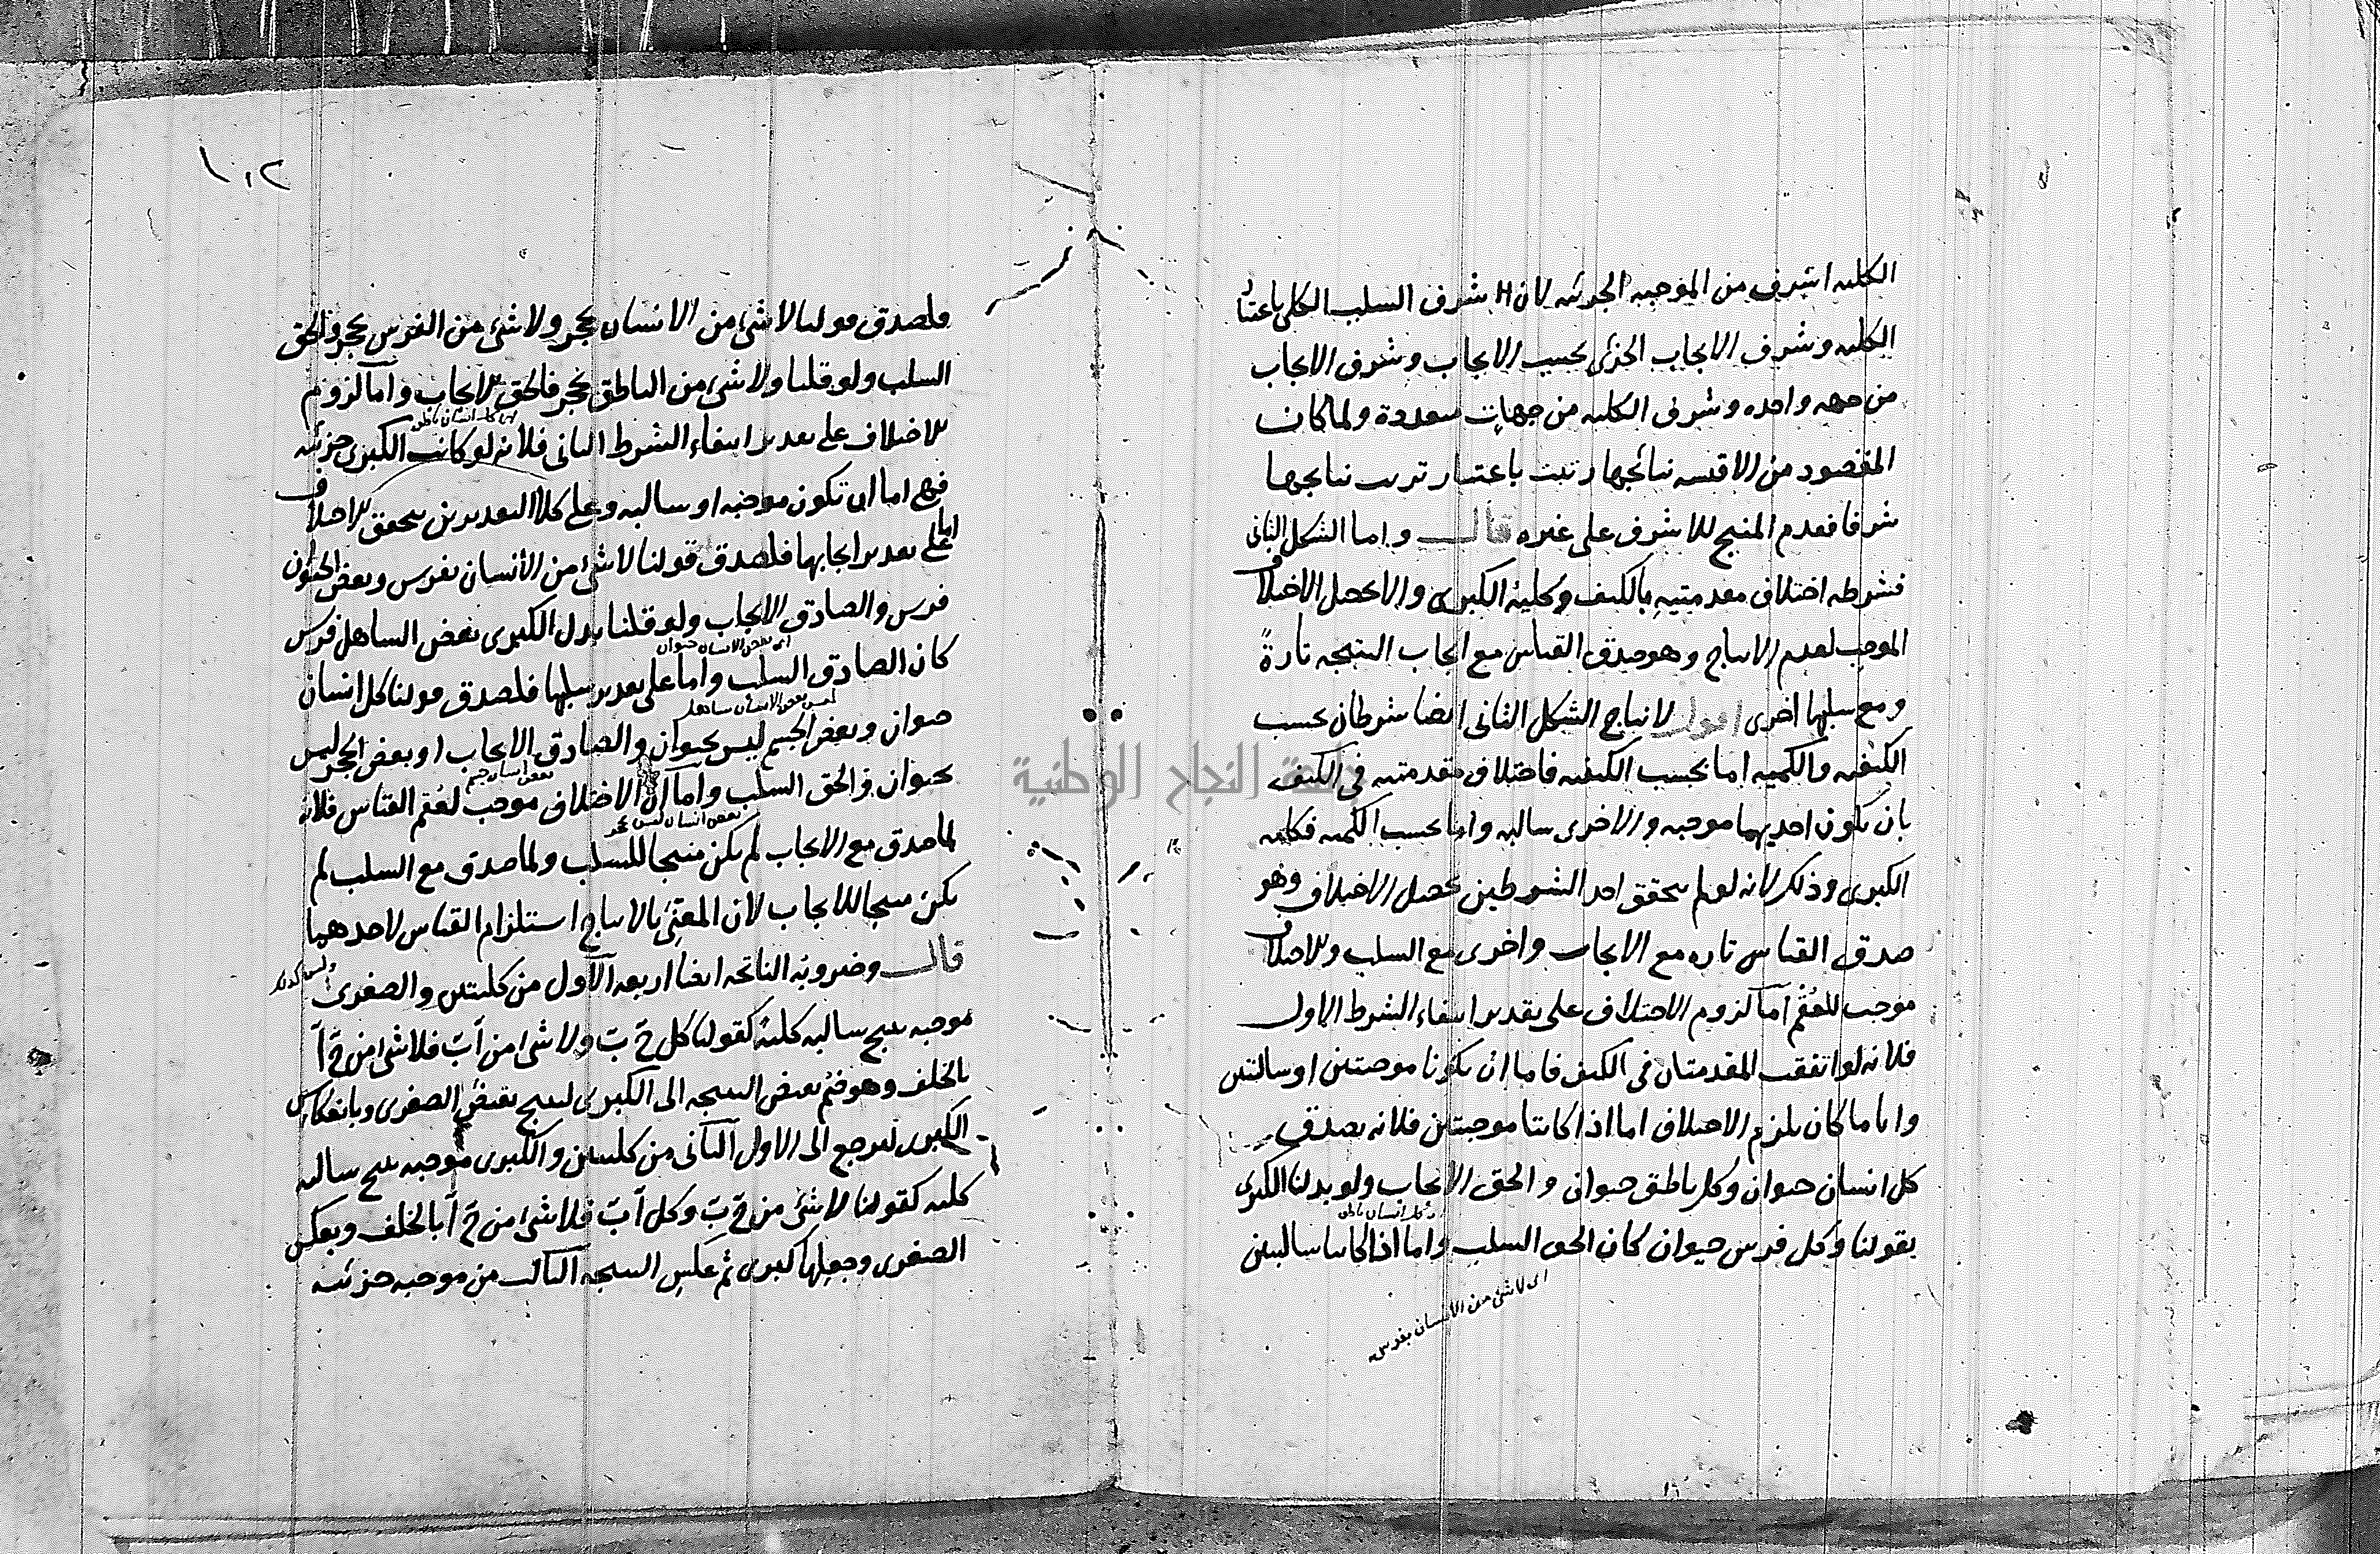 الكليه اشرف من الموجبه الجزئيه لان شرف السلب الكلى باعتبار
الكليه وشرف الايجاب الجزئى بحسب الايجاب وشرف الايجاب
من جهه واحده وشرف الكليه من جهات متعددة ولما كان
المقصود من الاقيسه نتائجها رتبت باعتبار ترتيب نتايجها
شرفا فقدم المنتج للاشرف على غيره قال واما الشكل الثانى
فشرطه اختلاف مقدمتيه بالكيف وكلية الكبرى والا يحصل الاختلاف
الموجب لعدم الانتاج وهو صدق القياس مع ايجاب النتيجه تارةً
ومع سلبها اخرى اقول لانتاج الشكل الثانى ايضا شرطان بحسب
الكيفيه والكميه اما بحسب الكيفيه فاختلاف مقدمتيه فى الكيف
بان يكون احديهما موجبه والاخرى سالبه واما بحسب الكميه فكليه
الكبرى وذلك لانه لو لم يتحقق احد الشرطين يحصل الاختلاف وهو
صدق القياس تاره مع الايجاب واخرى مع السلب والاختلاف
موجب للعقم اما لزوم الاختلاف على تقدير انتفاء الشرط الاول
فلانه لو اتفقت المقدمتان فى الكيف فاما ان يكونا موجبتين او سالبتين
واياما كان يلزم الاختلاف اما اذا كانتا موجبتين فلانه يصدق
كل انسان حيوان وكل ناطق حيوان والحق الايجاب ولو بدلنا الكبرى
وكل انسان ناطق
بقولنا وكل فرس حيوان كان الحق السلب واما اذا كانتا سالبتين
اى لا شئ من الانسان بفرس
جامعة النجاح الوطنية
١٠٢
فلصدق قولنا لا شئ من الانسان بحجر ولا شئ من الفرس بحجر والحق
السلب ولو قلنا ولا شئ من الناطق بحجر فالحق الايجاب واما لزوم
اى كل انسان ناطق
الاختلاف على تقدير انتفاء الشرط الثانى فلانه لو كانت الكبرى جزئيه
فهى اما ان تكون موجبه او سالبه وعلى كلا التقديرين يتحقق الاختلاف
اما على تقدير ايجابها فلصدق قولنا لا شئ من الانسان بفرس وبعض الحيوان
فرس والصادق الايجاب ولو قلنا بدل الكبرى بعض الصاهل فرس
اى بعض الانسان حيوان
كان الصادق السلب واما على تقدير سلبها فلصدق قولنا كل انسان
ليس بعض الانسان صاهل
حيوان وبعض الجسم ليس بحيوان والصادق الايجاب او بعض الحجر ليس
بعض انسان جسم
بحيوان فالحق السلب واما ان الاختلاف موجب لعقم القياس فلانه
بعض انسان ليس بحجر
لما صدق مع الايجاب لم يكن منتجا للسلب ولما صدق مع السلب لم
يكن منتجا للايجاب لان المعنى بالانتاج استلزام القياس لاحدهما
قال وضروبه الناتجه ايضا اربعه الاول من كليتين والصغرى
موجبه ينتج سالبه كلية كقولنا كل ج ب ولا شئ من آ ب فلا شئ من ج آ
بالخلف وهو ضم نقيض النتيجه الى الكبرى لينتج نقيض الصغرى وبانعكاس
الكبرى ليرجع الى الاول الثانى من كليتين والكبرى موجبه ينتج سالبه
كليه كقولنا لا شئ من ج ب وكل آ ب فلا شئ من ج آ بالخلف وبعكس
الصغرى وجعلها كبرى ثم عكس النتيجه الثالث من موجبه جزئيه